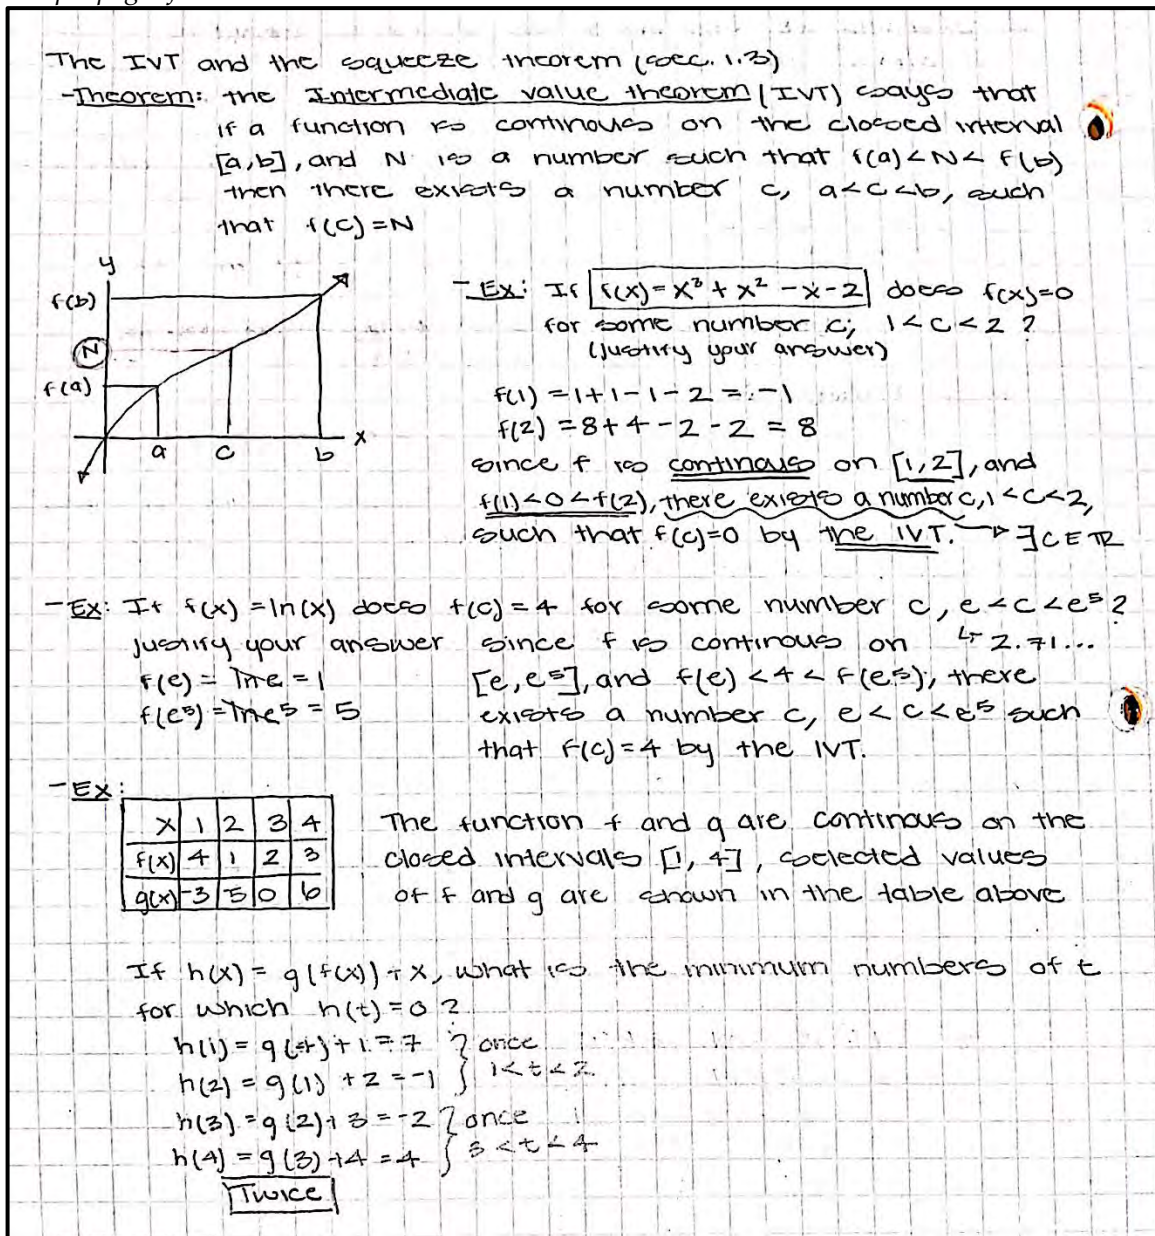 The IVT and the squeeze theorem (sec. 1.3)
-Theorem: the Intermediate value theorem (IVT) says that
if a function is continous on the closed interval
[a,b], and N is a number such that f(a) < N < f(b)
then there exists a number c, a < c < b, such
that f(c) = N
y
f(b)
N
f(a)
a c b x
- Ex: If f(x) = x³ + x² - x - 2 does f(x)=0
for some number c, 1 < c < 2 ?
(justify your answer)
f(1) = 1+1-1-2 = -1
f(2) = 8+4-2-2 = 8
since f is continous on [1,2], and
f(1)<0<f(2), there exists a number c, 1<c<2,
such that f(c)=0 by the IVT. → ∃c∈ℝ
- Ex: If f(x) = ln(x) does f(c) = 4 for some number c, e < c < e⁵ ?
↳ 2.71...
justify your answer
f(e) = lne = 1
f(e⁵) = lne⁵ = 5
since f is continous on
[e, e⁵], and f(e) < 4 < f(e⁵), there
exists a number c, e < c < e⁵ such
that f(c) = 4 by the IVT.
- Ex:
x 1 2 3 4
f(x) 4 1 2 3
g(x) -3 -5 0 6
The function f and g are continous on the
closed intervals [1, 4], selected values
of f and g are shown in the table above
If h(x) = g(f(x)) + x, what is the minimum numbers of t
for which h(t) = 0 ?
h(1) = g(4) + 1 = 7 } once
h(2) = g(1) + 2 = -1 } 1<t<2
h(3) = g(2) + 3 = -2 } once
h(4) = g(3) + 4 = 4 } 3<t<4
Twice